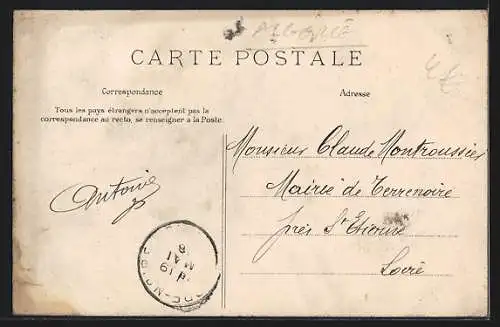 ALGERIE
CARTE POSTALE
Correspondance
Adresse
Tous les pays étrangers n'acceptent pas la
correspondance au recto, se renseigner à la Poste.
Monsieur Claude Montroussier
Mairie de Terrenoire
près St Etienne
Loire
Antoine